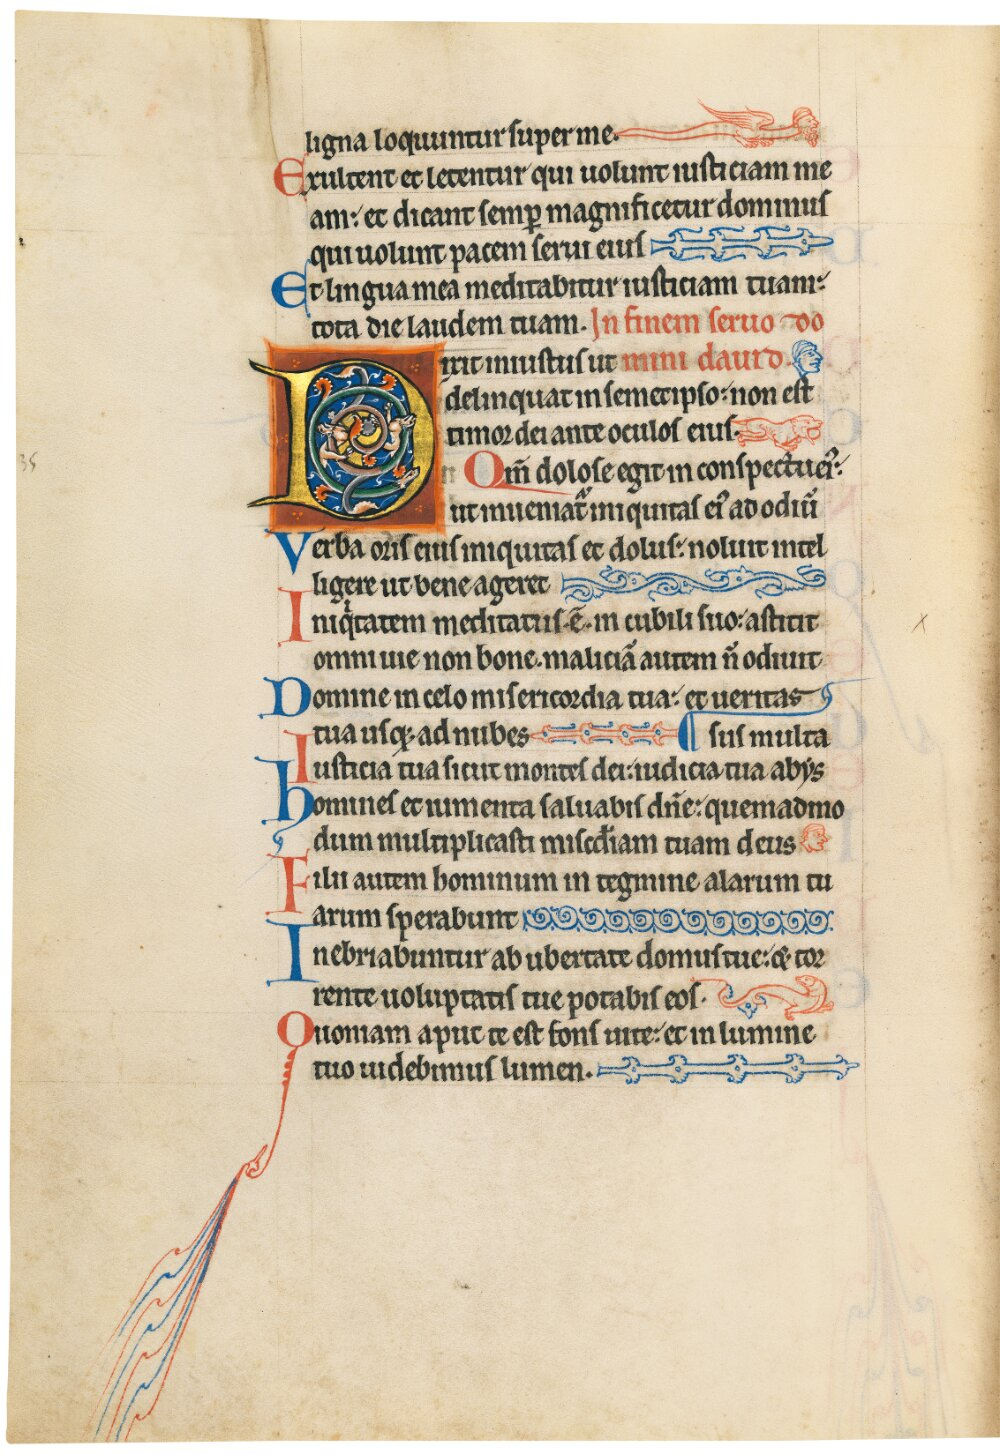 ligna loquuntur super me.
Exultent et letentur qui uolunt iusticiam me
am: et dicant semp magnificetur dominus
qui uolunt pacem serui eius
Et lingua mea meditabitur iusticiam tuam:
tota die laudem tuam. In finem seruo do
Dixit iniustus ut mini dauid.
delinquat in semetipso: non est
timor dei ante oculos eius.
Qm̄ dolose egit in conspectu ei᾽:
ut inueniat᾽ iniquitas ei᾽ ad odiū
Verba oris eius iniquitas et dolus: noluit intel
ligere ut bene ageret
Iniqͥtatem meditatus ē in cubili suo: astitit
omni uie non bone. maliciā autem n̄ odiuit
Domine in celo misericordia tua: et ueritas
tua usq; ad nubes sus multa
Iusticia tua sicut montes dei: iudicia tua abys
homines et iumenta saluabis dn̄e: quemadmo
dum multiplicasti miscdiam tuam deus
Filii autem hominum in tegmine alarum tu
arum sperabunt
Inebriabuntur ab ubertate domus tue: & tor
rente uoluptatis tue potabis eos.
Quoniam aput te est fons uite: et in lumine
tuo uidebimus lumen.
35
x